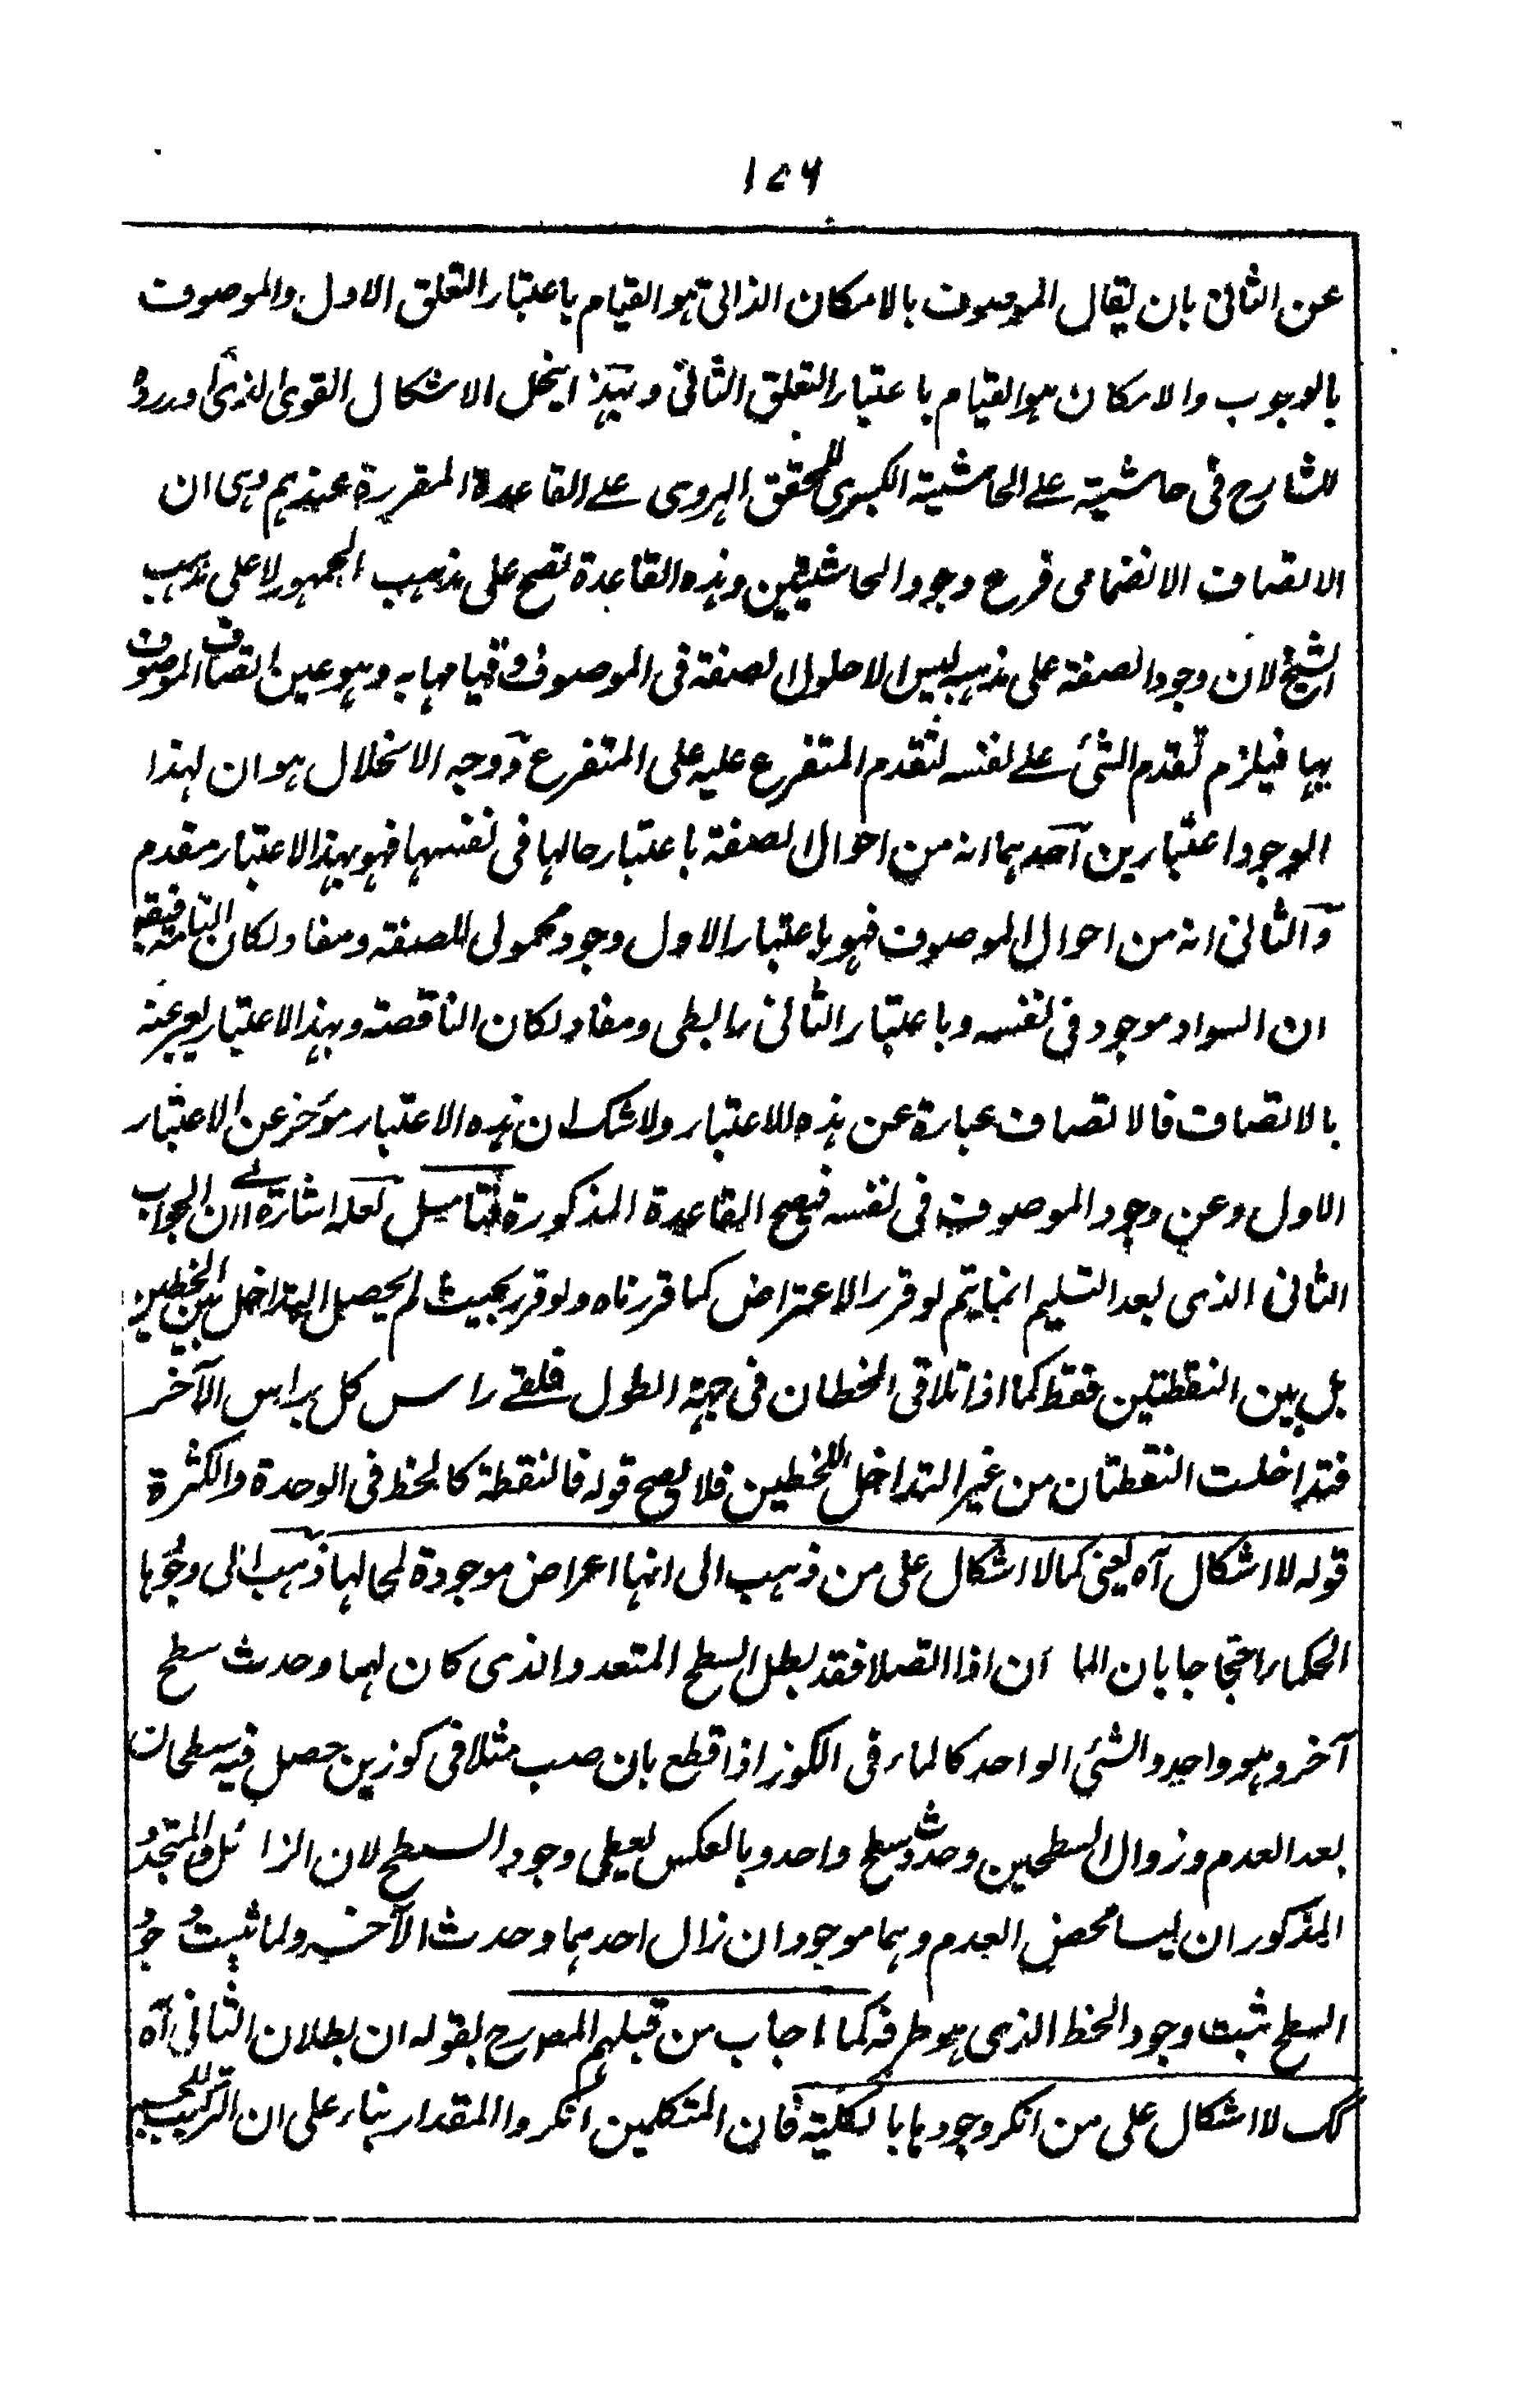 ١٥٦
عن الثانی بان یقال الموصوف بالامکان الذاتی هو القیام باعتبار التعلق الاول والموصوف
بالوجوب والامکان هو القیام باعتبار التعلق الثانی وبهذا ینحل الاشکال القوی الذی اورده
الشارح فی حاشیته علی الحاشیة الکبری للمحقق الهروی علی القاعدة المقررة عندهم وهی ان
الاتصاف الانضمامی فرع وجود الحاشیتین وهذه القاعدة تصح علی مذهب الجمهور لا علی مذهب
الشیخ لان وجود الصفة علی مذهبه لیس الا حلول الصفة فی الموصوف وقیامها به وهو عین اتصاف الموصوف
بها فیلزم تقدم الشئ علی نفسه لتقدم المتفرع علیه علی المتفرع ووجه الانحلال هو ان لهذا
الوجود اعتبارین احدهما انه من احوال الصفة باعتبار حالها فی نفسها فهو بهذا الاعتبار مقدم
والثانی انه من احوال الموصوف فهو باعتبار الاول وجود محمولی للصفة ومفاد لکان التامة فیقه
ان السواد موجود فی نفسه وباعتبار الثانی رابطی ومفاد لکان الناقصة وبهذا الاعتبار یعبر عنه
بالاتصاف فالاتصاف عبارة عن هذه الاعتبار ولا شک ان هذه الاعتبار مؤخر عن الاعتبار
الاول وعن وجود الموصوف فی نفسه فیصح القاعدة المذکورة فتامل لعله اشارة الی ان الجواب
الثانی الذی بعد التسلیم انما یتم لو قرر الاعتراض کما قررناه ولو قرر بحیث لم یحصل التداخل بین الخطین
بل بین النقطتین فقط کما اذا تلاقی الخطان فی جهة الطول فلقی راس کل براس الآخر
فتداخلت النقطتان من غیر التداخل للخطین فلا یصح قوله فالنقطة کالخط فی الوحدة والکثرة
قوله لا اشکال آه یعنی کما لا اشکال علی من ذهب الی انها اعراض موجودة لمحالها ذهب الی وجودها
الحکماء احتجاجا بان الما ان اذا اتصلا فقد بطل السطح المتعدد الذی کان لهما وحدث سطح
آخر وهو واحد والشئ الواحد کالماء فی الکوز اذا قطع بان صب مثلا فی کوزین حصل فیه سطحان
بعد العدم وزوال السطحین وحدوث سطح واحد وبالعکس یعطی وجود السطح لان الزائل والمتجدد
المذکوران لیسا محض العدم وهما موجودان زال احدهما وحدث الآخر ولما ثبت وجود
السطح ثبت وجود الخط الذی هو طرفه کما اجاب من قبلهم المصرح بقوله ان بطلان الثانی آه
کک لا اشکال علی من انکر وجودها بالکلیة فان المتکلمین انکروا المقدار بناء علی ان الترکیب للجسم